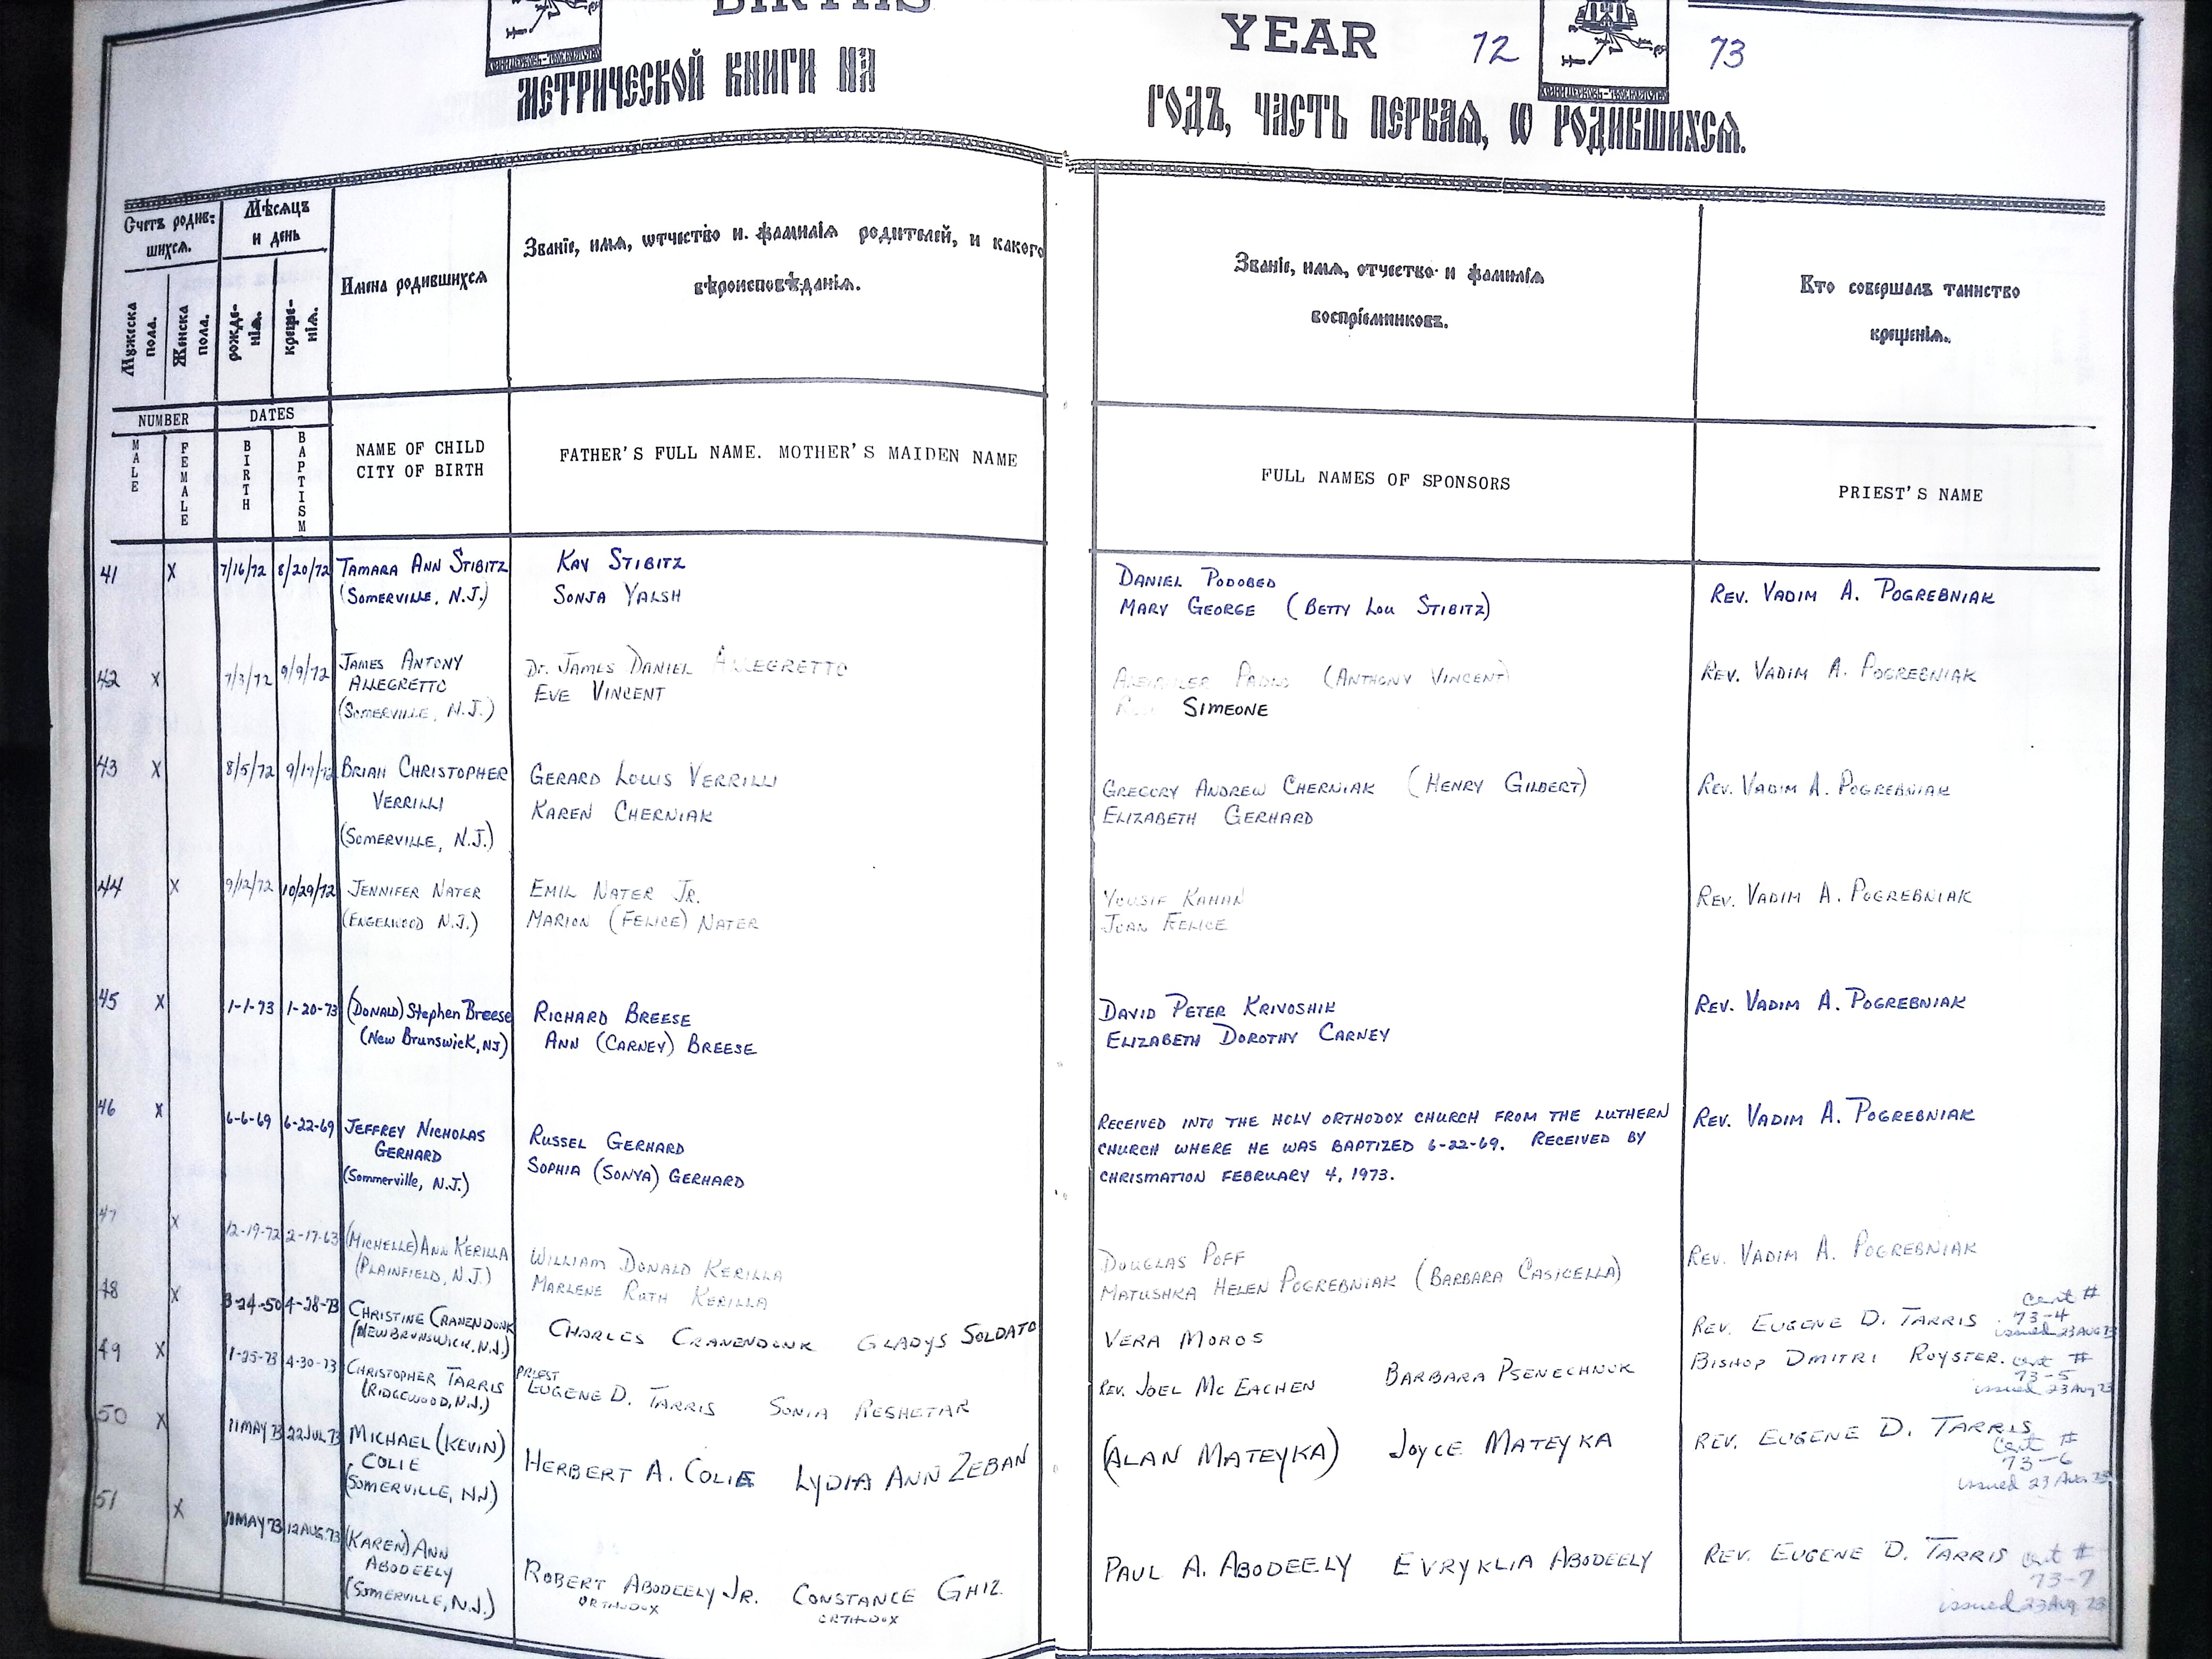 BIRTHS
YEAR 72 73
МЕТРИЧЕСКОЙ КНИГИ НА
ГОДЪ, ЧАСТЬ ПЕРВАЯ, Ѡ РОДИВШИХСЯ.
Счетъ родив-
шихся.
Мѣсяцъ
и день
Мужеска
пола.
Женска
пола.
рожде-
нія.
креще-
нія.
Имена родившихся
Званіе, имя, ѡтчество и. фамилія родителей, и какого
вѣроисповѣданія.
Званіе, имя, отчество и фамилія
воспріемниковъ.
Кто совершалъ таинство
крещенія.
NUMBER
DATES
MALE
FEMALE
BIRTH
BAPTISM
NAME OF CHILD
CITY OF BIRTH
FATHER'S FULL NAME. MOTHER'S MAIDEN NAME
FULL NAMES OF SPONSORS
PRIEST'S NAME
41 X 7/16/72 8/20/72 TAMARA ANN STIBITZ
(SOMERVILLE, N.J.)
KAY STIBITZ
SONJA YALSH
DANIEL PODOBED
MARY GEORGE (BETTY LOU STIBITZ)
REV. VADIM A. POGREBNIAK
42 X 7/3/72 9/9/72 JAMES ANTONY
ALLEGRETTO
(SOMERVILLE, N.J.)
DR. JAMES DANIEL ALLEGRETTO
EVE VINCENT
(ANTHONY VINCENT)
SIMEONE
REV. VADIM A. POGREBNIAK
43 X 8/5/72 9/17/72 BRIAN CHRISTOPHER
VERRILLI
(SOMERVILLE, N.J.)
GERARD LOUIS VERRILLI
KAREN CHERNIAK
GREGORY ANDREW CHERNIAK (HENRY GILBERT)
ELIZABETH GERHARD
REV. VADIM A. POGREBNIAK
44 X 9/12/72 10/29/72 JENNIFER NATER
(ENGELWOOD N.J.)
EMIL NATER JR.
MARION (FELICE) NATER
YOUSIF KAHAN
JOAN FELICE
REV. VADIM A. POGREBNIAK
45 X 1-1-73 1-20-73 (DONALD) Stephen Breese
(New Brunswick, NJ)
RICHARD BREESE
ANN (CARNEY) BREESE
DAVID PETER KRIVOSHIK
ELIZABETH DOROTHY CARNEY
REV. VADIM A. POGREBNIAK
46 X 6-6-69 6-22-69 JEFFREY NICHOLAS
GERHARD
(Sommerville, N.J.)
RUSSEL GERHARD
SOPHIA (SONYA) GERHARD
RECEIVED INTO THE HOLY ORTHODOX CHURCH FROM THE LUTHERN
CHURCH WHERE HE WAS BAPTIZED 6-22-69. RECEIVED BY
CHRISMATION FEBRUARY 4, 1973.
REV. VADIM A. POGREBNIAK
47 X 12-19-72 2-17-63 (MICHELLE) ANN KERILLA
(PLAINFIELD, N.J.)
WILLIAM DONALD KERILLA
MARLENE RUTH KERILLA
DOUGLAS POFF
MATUSHKA HELEN POGREBNIAK (BARBARA CASICELLA)
REV. VADIM A. POGREBNIAK
48 X 3-24-50 4-28-73 CHRISTINE CRANENDONK
(NEW BRUNSWICK, N.J.)
CHARLES CRANENDONK GLADYS SOLDATO
VERA MOROS
REV. EUGENE D. TARRIS
Cert #
73-4
issued 23 AUG 73
49 X 1-25-73 4-30-73 CHRISTOPHER TARRIS
(RIDGEWOOD, N.J.)
PRIEST
EUGENE D. TARRIS SONIA RESHETAR
REV. JOEL MC EACHEN BARBARA PSENECHNUK
BISHOP DMITRI ROYSTER.
cert #
73-5
issued 23 Aug 73
50 X 11 MAY 73 22 JUL 73 MICHAEL (KEVIN)
COLIE
(SOMERVILLE, N.J.)
HERBERT A. COLIE LYDIA ANN ZEBAN
(ALAN MATEYKA) JOYCE MATEYKA
REV. EUGENE D. TARRIS
Cert #
73-6
issued 23 Aug 73
51 X 11 MAY 73 12 AUG. 73 (KAREN) ANN
ABODEELY
(SOMERVILLE, N.J.)
ROBERT ABODEELY JR. CONSTANCE GHIZ
ORTHODOX ORTHODOX
PAUL A. ABODEELY EVRYKLIA ABODEELY
REV. EUGENE D. TARRIS
cert #
73-7
issued 23 Aug 73